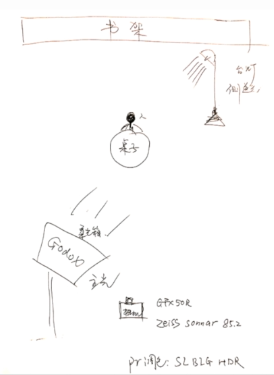 书架
台灯
侧逆光
人
桌子
柔光箱
Godox
主光
GFX50R
Zeiss Sonnar 85.2
pr调色: SLBLG HDR